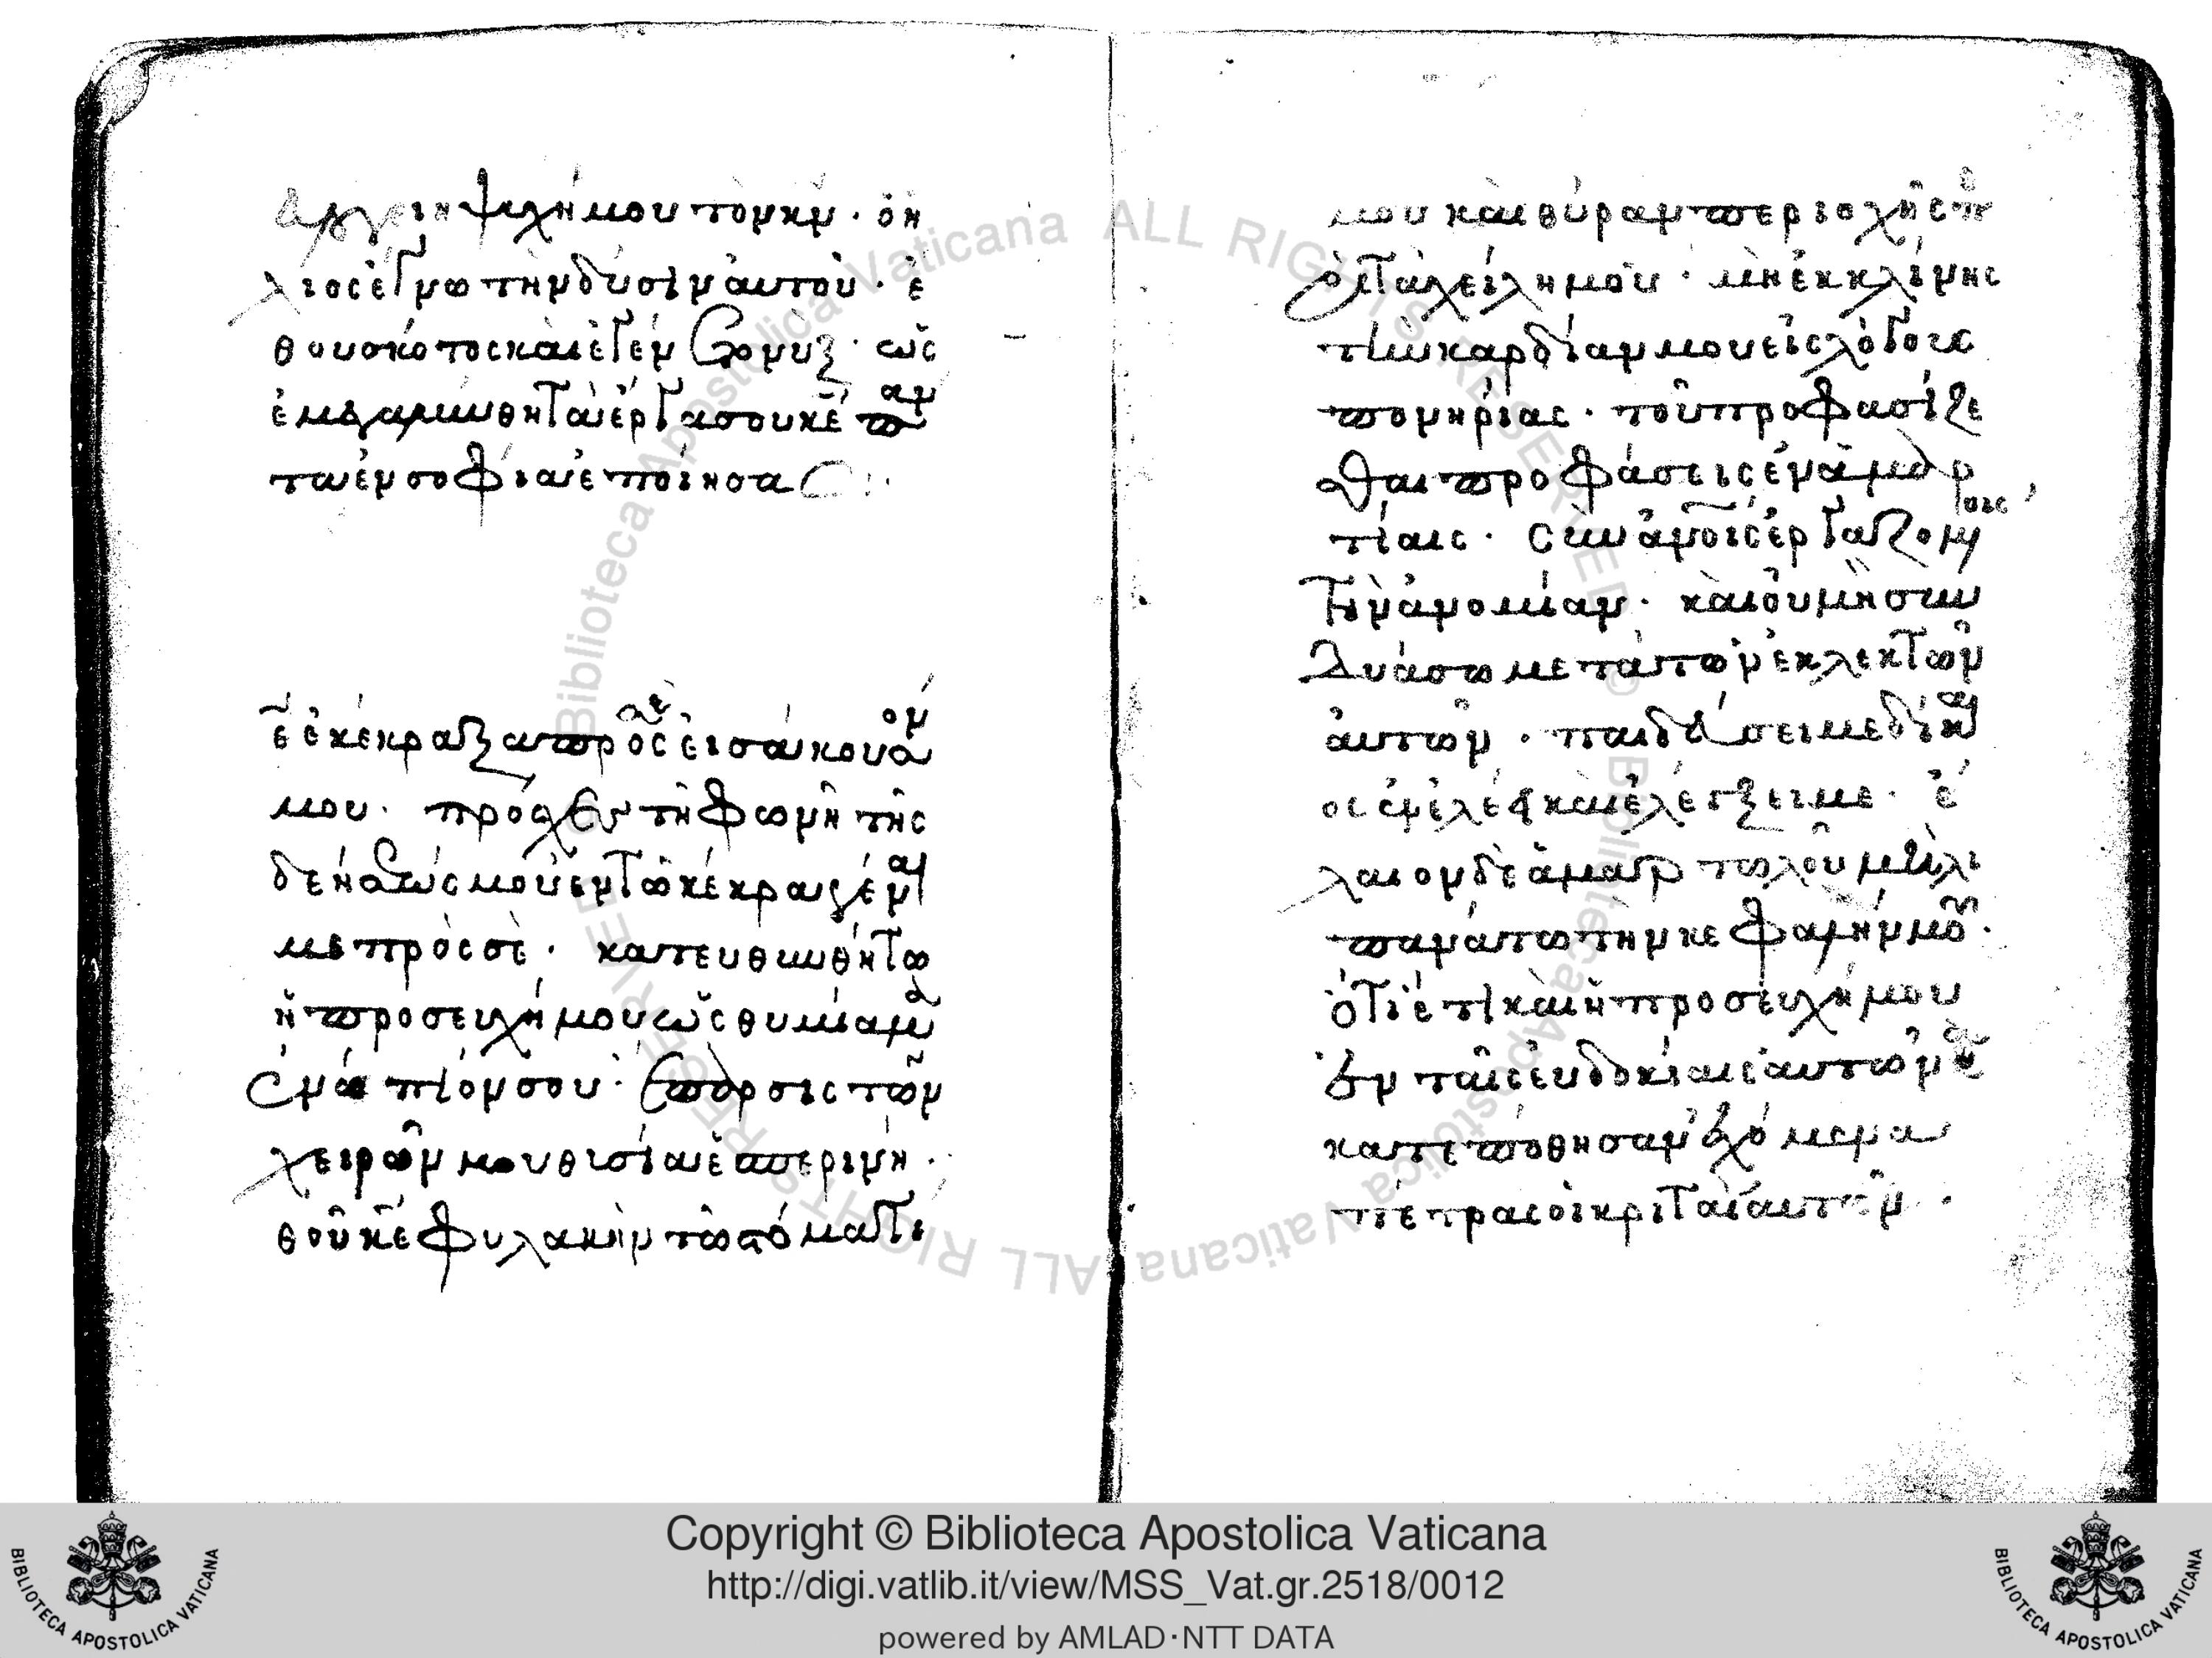 λόγει ἡ ψυχή μου τὸν κν · ὁ ἥ
λιος ἔγνω τὴν δύσιν αὐτοῦ · ἔ
θου σκότος καὶ ἐγένετο νύξ · ὡς
ἐμεγαλύνθη τὰ ἔργα σου κε παν
τα ἐν σοφία ἐποίησας
κε ἐκέκραξα προς σε εἰσάκουσον
μου · πρόσχες τῆ φωνῆ τῆς
δεήσεώς μου ἐν τῶ κεκραγέναι
με πρὸς σὲ · κατευθυνθήτω
ἡ προσευχή μου ὡς θυμίαμα
ἐνώπιόν σου · ἔπαρσις τῶν
χειρῶν μου θυσία ἑσπερινή ·
θοῦ κε φυλακὴν τῶ στόματι
μου καὶ θύραν περιοχῆς πε
ρὶ τὰ χείλη μου · μὴ ἐκκλίνης
τὴν καρδίαν μου εἰς λόγους
πονηρίας · τοῦ προφασίζε
σθαι προφάσεις ἐν ἁμαρ
τίαις · σὺν ἀνοις ἐργαζομένοις
τὴν ἀνομίαν · καὶ οὐ μὴ συν
δυάσω μετὰ τῶν ἐκλεκτῶν
αὐτῶν · παιδεύσει με δίκαι
ος ἐν ἐλέει καὶ ἐλέγξει με · ἔ
λαιον δὲ ἁμαρτωλοῦ μὴ λι
πανάτω τὴν κεφαλήν μου ·
ὅτι ἔτι καὶ ἡ προσευχή μου
ἐν ταῖς εὐδοκίαις αὐτῶν
κατεπόθησαν ἐχόμενα
πέτρας οἱ κριταὶ αὐτῶν ·
Copyright © Biblioteca Apostolica Vaticana
http://digi.vatlib.it/view/MSS_Vat.gr.2518/0012
powered by AMLAD·NTT DATA
BIBLIOTECA APOSTOLICA VATICANA
BIBLIOTECA APOSTOLICA VATICANA
© Biblioteca Apostolica Vaticana ALL RIGHTS RESERVED
© Biblioteca Apostolica Vaticana ALL RIGHTS RESERVED